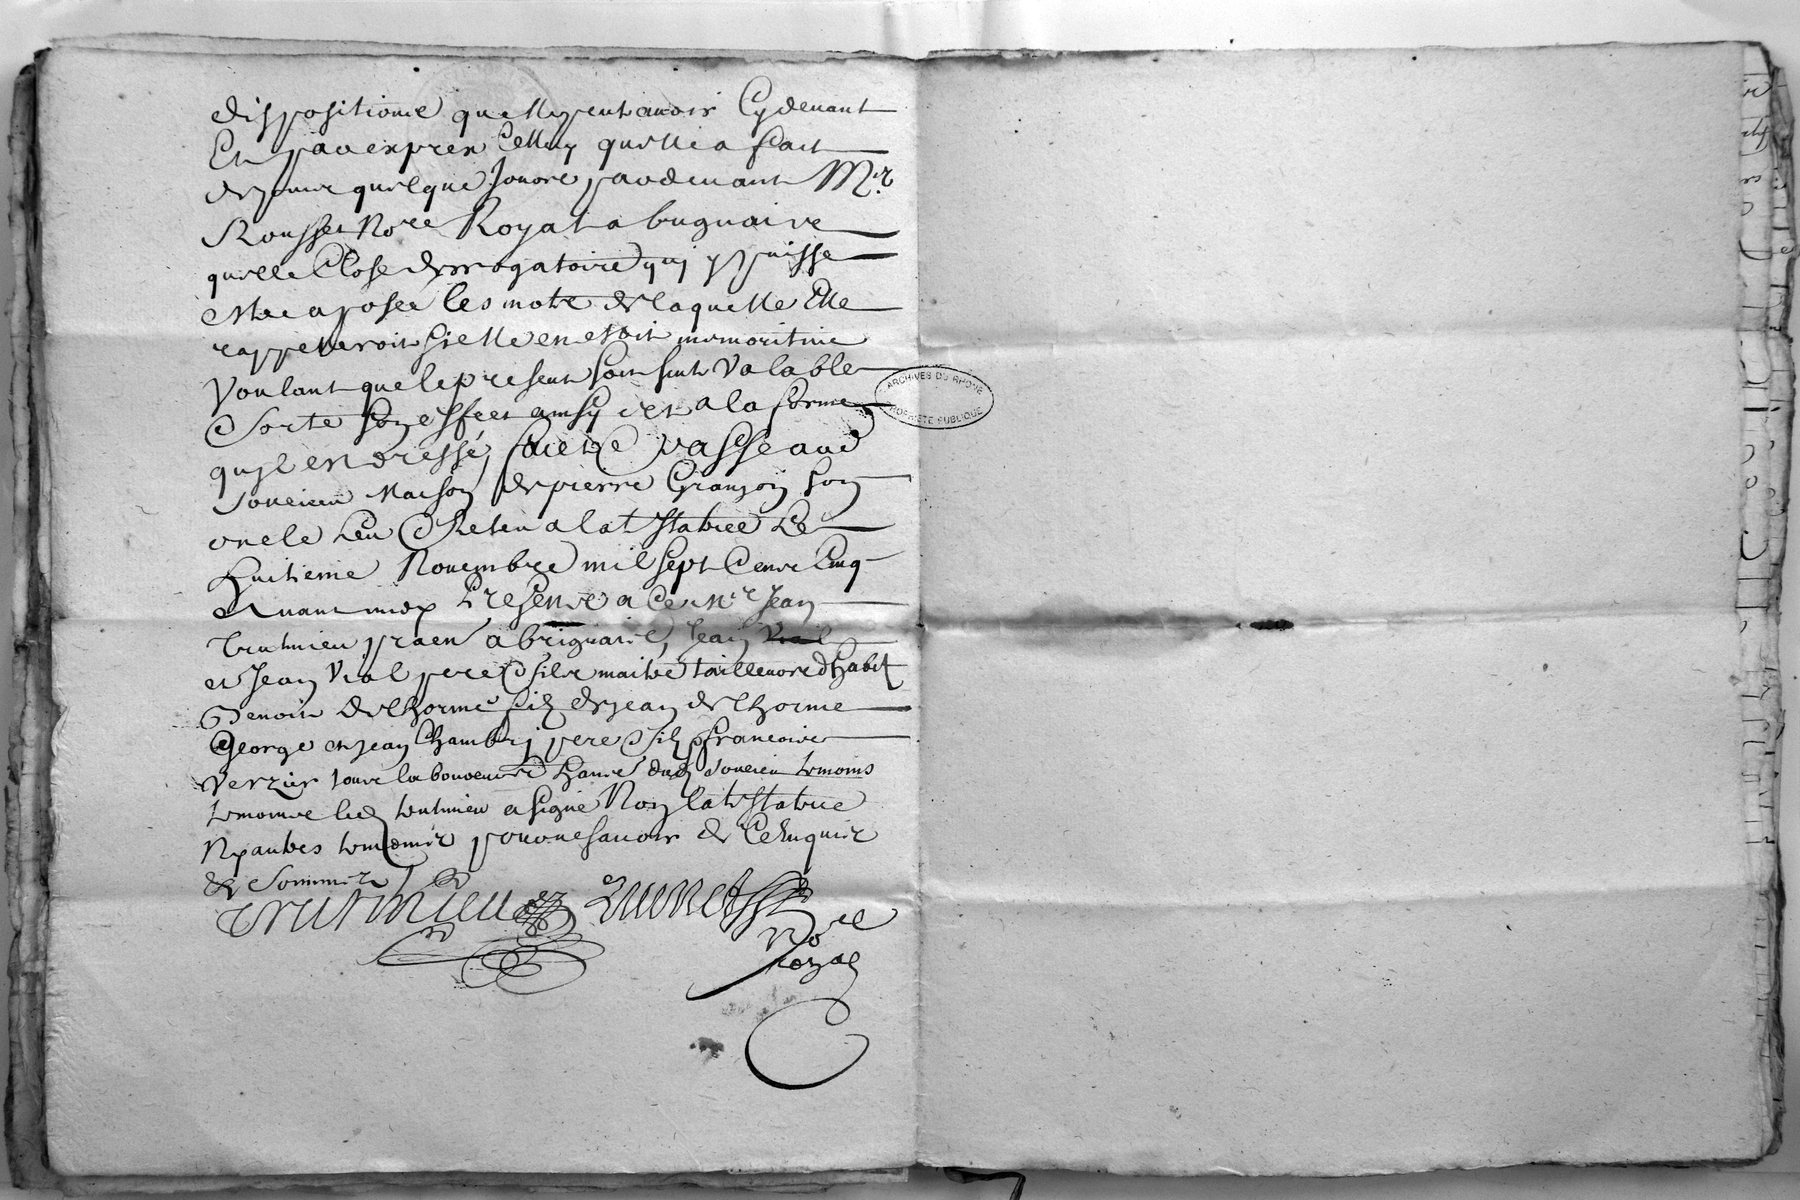 dispositions quelle peut avoir Cydevant
Et par exprex Celluy quelle a fait
depuis quelque Jours pardevant Mr.
Rousset Nore Royal a brignais
quelle Close derrogatoire qui y puisse
estre aposée les mots de laquelle Elle
rappelleroit sielle en estoit
Voulant que le present soit seul Valable
Sorte son effect ainsy et a la forme
quil est dressé, faict e passe aud
Soucieu Maison de pierre Granjon son
oncle Lieu de la testatrice Le
huitieme Novembre mil sept Cents Cinq
Presents a Ce Mre Jean
trutmieu praen a brignais, Jean Vial
et Jean Vial pere & fils maitre tailleurs dhabit
Benoist de Lhorme fils de Jean de Lhorme
George et Jean Chambry pere & fils francois
Verzier tous laboureurs hants dud Soucieu temoins
temoins led trutmieu a signé Non la testatrice
Ny autres temoins pour ne savoir de Ce Enquis
& Sommés
trutmieu
Nore
Royal
ARCHIVES DU RHONE
PROPRIETE PUBLIQUE